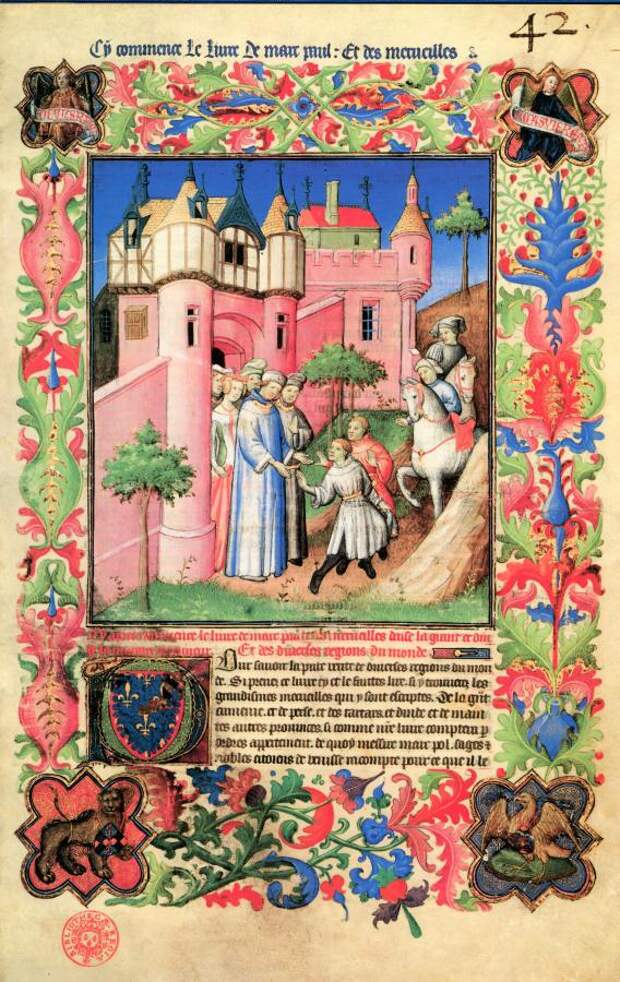 42.
Cy commence le livre de marc paul : Et des merveilles
le livre de marc paul merveilles daise la grant et dinde
Et des diverses regions du monde
Pour savoir la pure verite de diverses regions du mon
de. Si prenez ce livre cy et le faites lire. si y trouverez les
grandismes merveilles qui y sont escriptes. De la grāt
armenie. et de perse. et des tartars. et dinde et de maint
tes autres provinces. si comme nr̄e livre comptera p
ordres appertement. de quoy messire marc pol. sages ⁊
nobles citoiens de venisse racompte pour ce que il le
BIBLIOTHECA REGIA